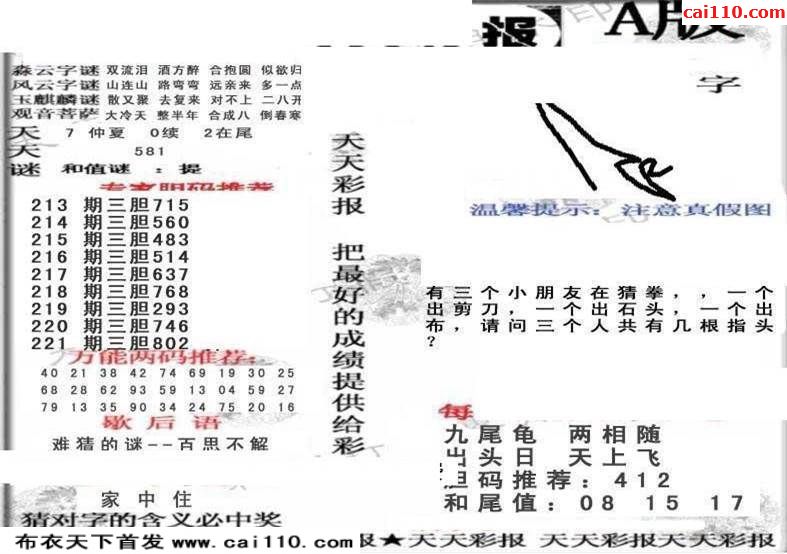 cai110.com
报 A版
字
森云字谜 双流泪 酒方醉 合抱圆 似欲归
风云字谜 山连山 路弯弯 远亲来 多一点
玉麒麟谜 散又聚 去复来 对不上 二八开
观音菩萨 大冷天 整半年 合成八 倒春寒
天 7 仲夏 0续 2在尾
天 581
谜 和值谜 : 提
专家胆码推荐
213 期三胆715
214 期三胆560
215 期三胆483
216 期三胆514
217 期三胆637
218 期三胆768
219 期三胆293
220 期三胆746
221 期三胆802
万能两码推荐:
40 21 38 42 74 69 19 30 25
68 28 62 93 59 13 04 59 27
79 13 35 90 34 24 75 20 16
歇后语
难猜的谜--百思不解
家中住
猜对字的含义必中奖
天天彩报 把最好的成绩提供给彩
温馨提示: 注意真假图
有三个小朋友在猜拳,,一个
出剪刀,一个出石头,一个出
布,请问三个人共有几根指头
?
每
九尾龟 两相随
出头日 天上飞
胆码推荐:412
和尾值:08 15 17
布衣天下首发 www.cai110.com 彩报★天天彩报 天天彩报天天彩报